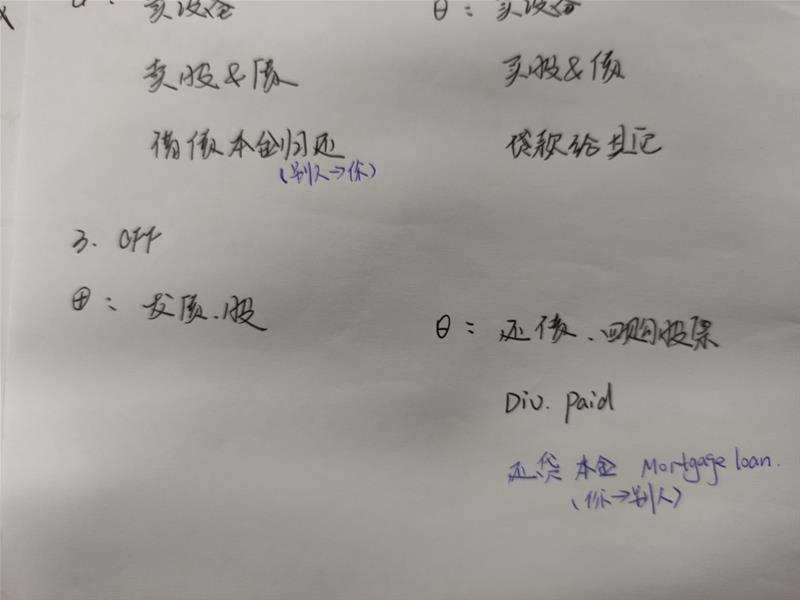 ⊕: 卖设备
⊖: 买设备
卖股&债
买股&债
借债本金归还
(别人→你)
贷款给其它
3. CFF
⊕: 发债、股
⊖: 还债、回购股票
Div. paid
还贷 本金 Mortgage loan.
(你→别人)